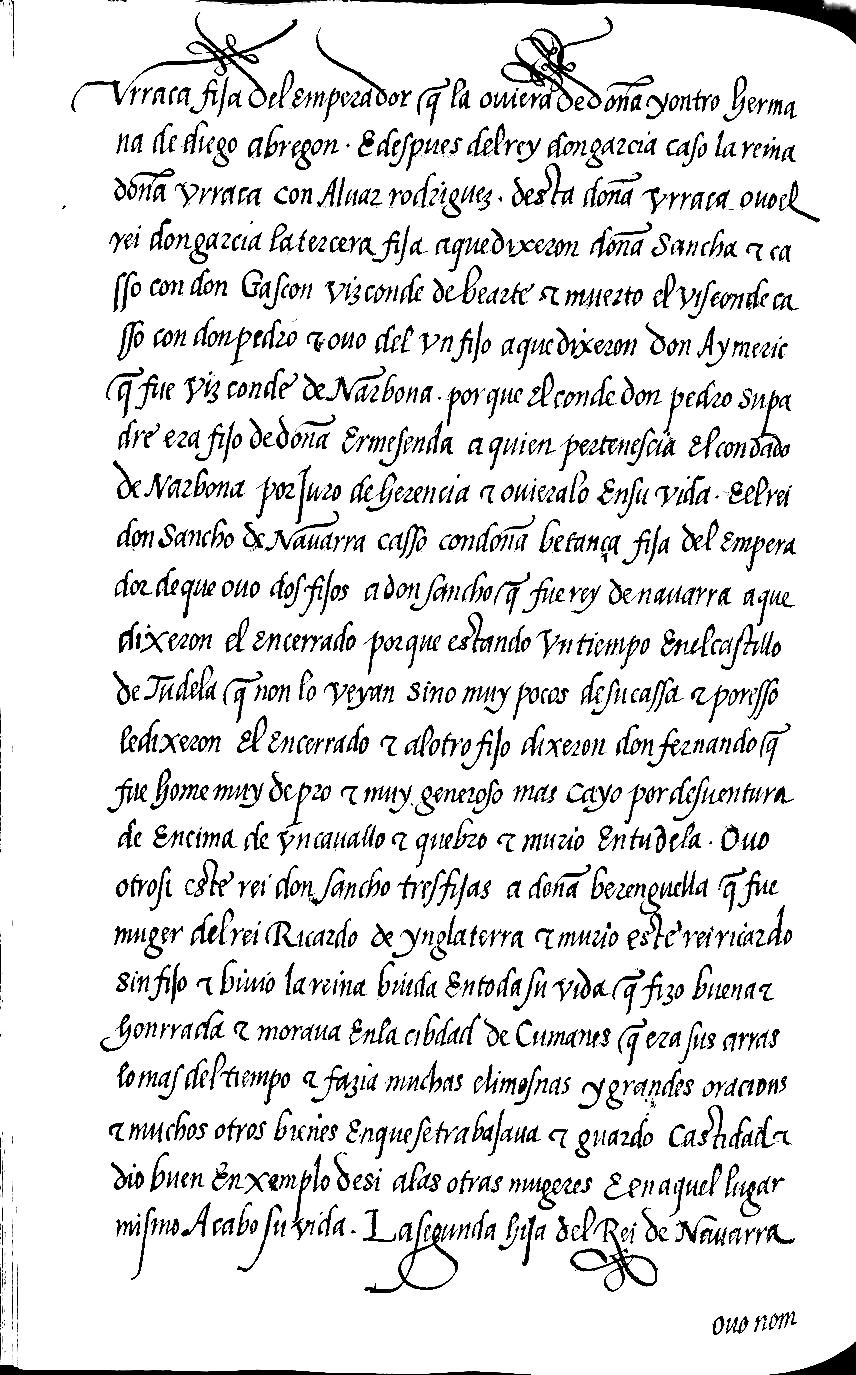 Vrraca fija del emperador q̃ la ouiera de doña yontro herma
na de diego abregon · E despues del rey don garcia caso la reina
doña Vrraca con Aluar rodriguez · desta doña Vrraca ouo el
rei don garcia la tercera fija a que dixeron doña Sancha ⁊ ca
sso con don Gascon vizconde de bearte ⁊ muerto el visconde ca
sso con don pedro ⁊ ouo del vn fijo a que dixeron don Aymeric
q̃ fue vizconde de Narbona · porque El conde don pedro su pa
dre era fijo de doña Ermesenda a quien pertenescia El condado
de Narbona por Juro de herencia ⁊ ouieralo En su vida · E el rei
don Sancho de Nauarra casso con doña betança fija del Empera
dor de que ouo dos fijos a don sancho q̃ fue rey de nauarra a que
dixeron el encerrado porque estando Vn tiempo En el castillo
de Tudela q̃ non lo veyan sino muy pocos de su cassa ⁊ por esso
le dixeron El Encerrado ⁊ al otro fijo dixeron don fernando q̃
fue home muy de pro ⁊ muy generoso mas cayo por desuentura
de Encima de vn cauallo ⁊ quebro ⁊ murio En tudela · Ouo
otrosi este rei don sancho tres fijas a doña berenguella q̃ fue
muger del rei Ricardo de ynglaterra ⁊ murio este rei ricardo
sin fijo ⁊ biuio la reina biuda En toda su vida q̃ fizo buena ⁊
honrrada ⁊ moraua En la cibdad de Cumanes q̃ era sus arras
lo mas del tiempo ⁊ fazia muchas elimosnas y grandes oracions
⁊ muchos otros bienes En que se trabajaua ⁊ guardo Castidad ⁊
dio buen Enxemplo de si a las otras mugeres E en aquel lugar
mismo Acabo su vida · La segunda hija del Rei de Nauarra
ouo nom